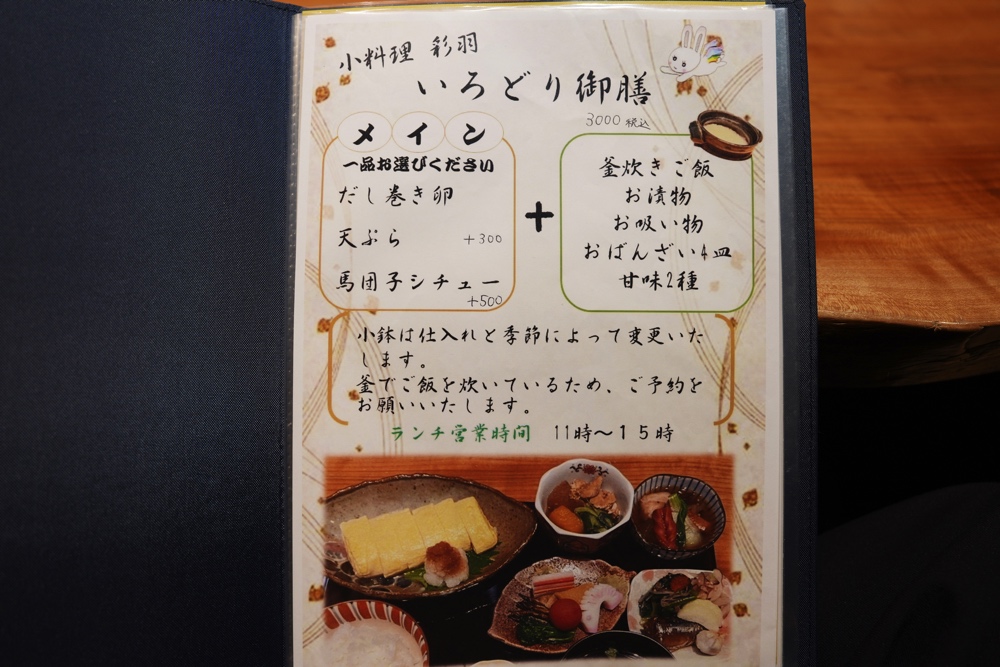 小料理 彩羽
いろどり御膳
3000 税込
メイン
一品お選びください
だし巻き卵
天ぷら +300
馬団子シチュー
+500
+
釜炊きご飯
お漬物
お吸い物
おばんざい4皿
甘味2種
小鉢は仕入れと季節によって変更いた
します。
釜でご飯を炊いているため、ご予約を
お願いいたします。
ランチ営業時間 11時～15時